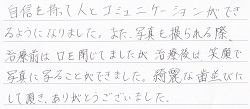 自信を持って人とコミュニケーションができ
るようになりました。また、写真を撮られる際、
治療前は口を閉じてましたが治療後は笑顔で
写真に写ることができました。綺麗な歯並びに
して頂き、ありがとうございました。